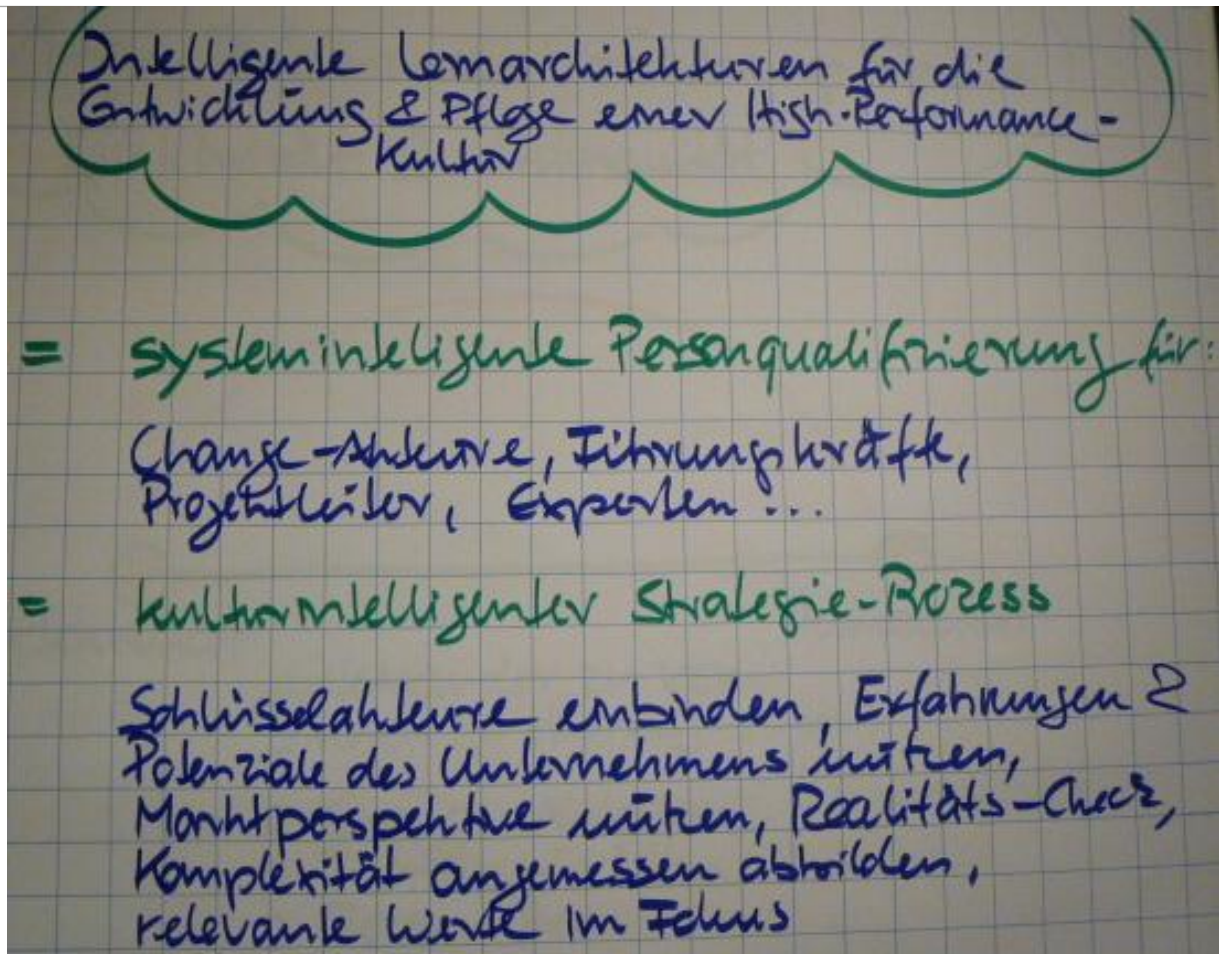 Intelligente Lernarchitekturen für die
Entwicklung & Pflege einer High-Performance-
Kultur
= systemintelligente Personqualifizierung für:
Change-Akteure, Führungskräfte,
Projektleiter, Experten ...
= kulturintelligenter Strategie-Prozess
Schlüsselakteure einbinden, Erfahrungen &
Potenziale des Unternehmens nützen,
Marktperspektive nützen, Realitäts-Check,
Komplexität angemessen abbilden,
relevante Werte im Fokus